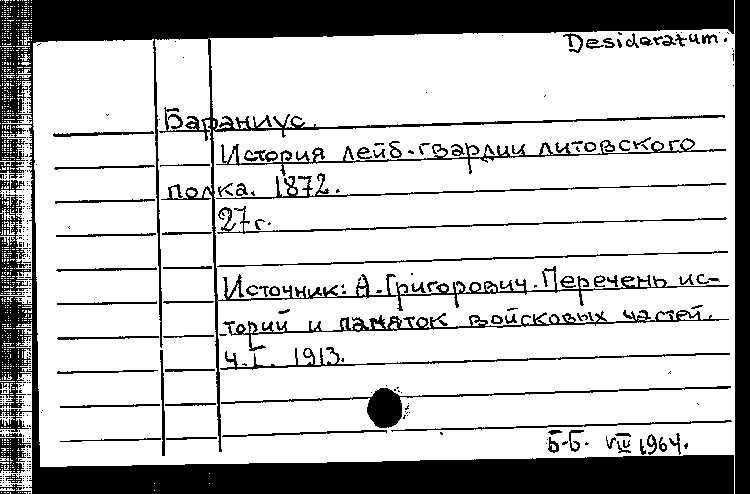 Desideratum.
Бараниус.
История лейб-гвардии литовского
полка. 1872.
27 г.
Источник: А. Григорович. Перечень ис-
торий и памяток войсковых частей.
Ч. I. 1913.
Б-Б. VIII 1964.